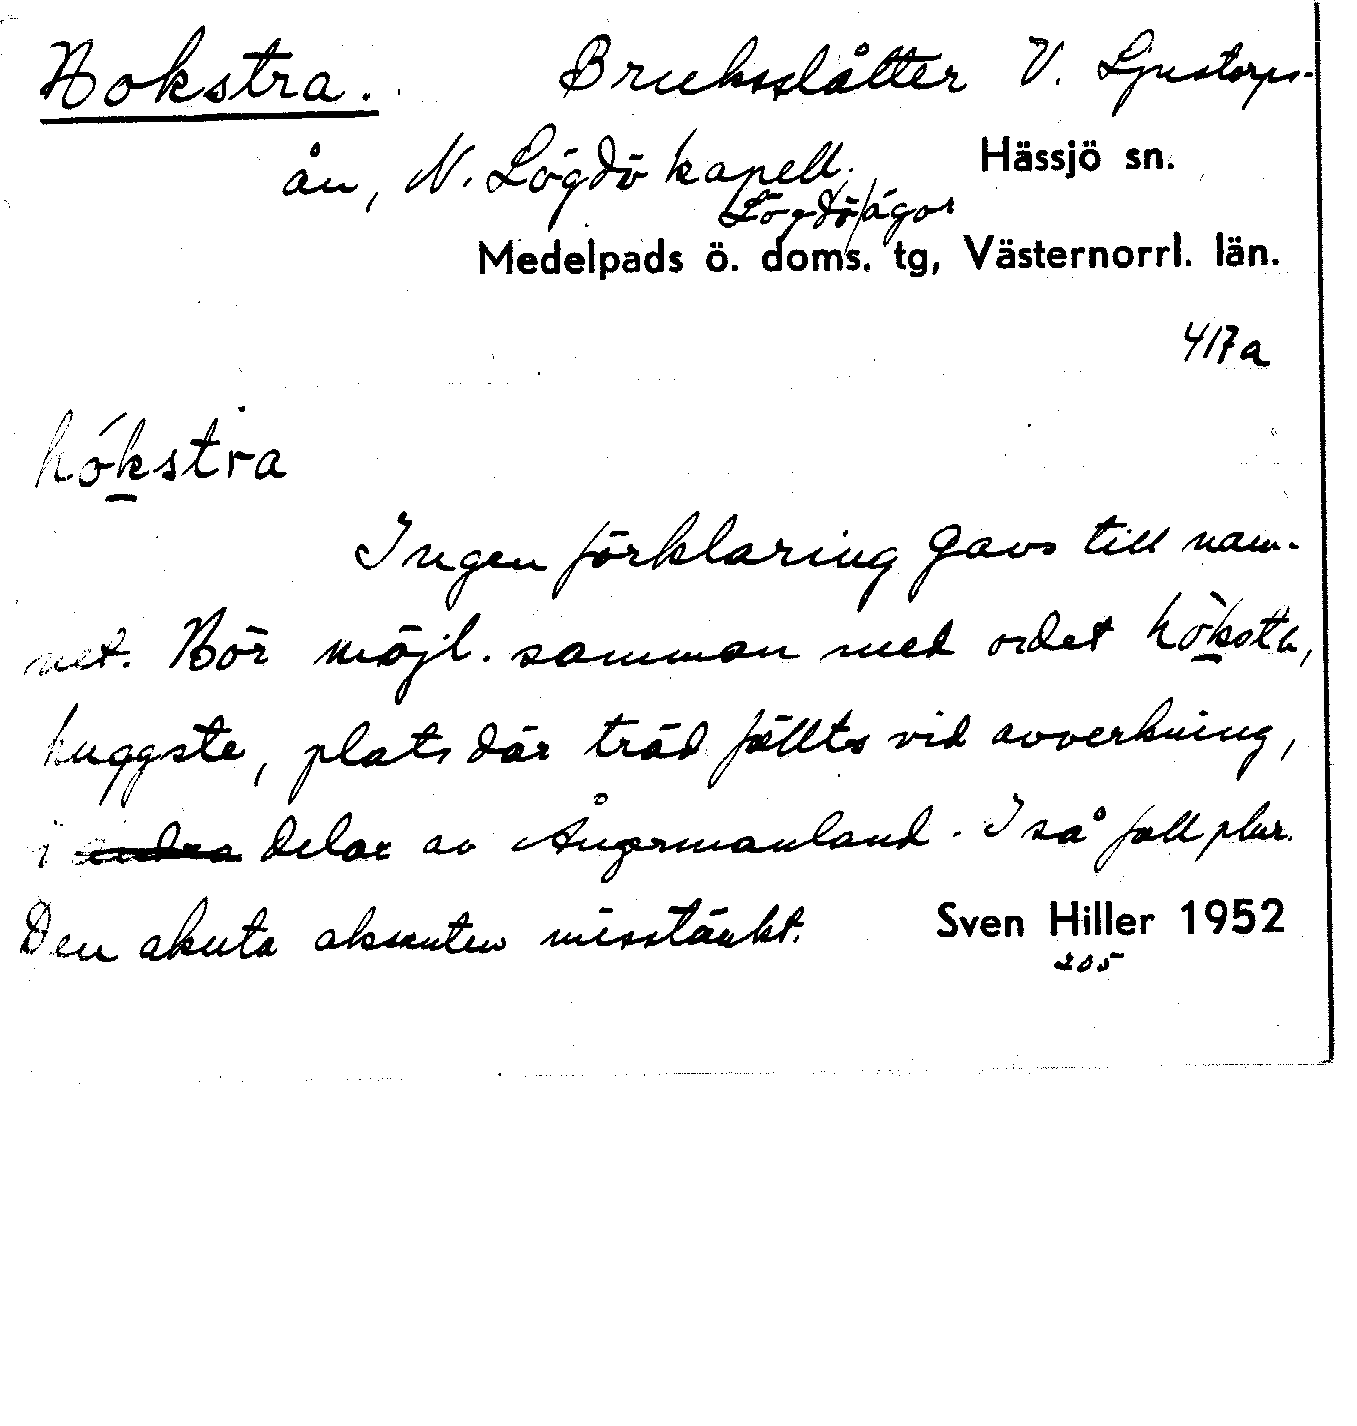 Hokstra. Bruksslåtter V. Ljustorps-
ån, N. Lögdö kapell. Hässjö sn.
Lögdö/ägor
Medelpads ö. doms. tg, Västernorrl. län.
417a
hókstra
Ingen förklaring gavs till nam-
net. Hör möjl. samman med ordet hòksta,
huggste, plats där träd fällts vid avverkning,
i andra delar av Ångermanland. I så fall plur.
Den akuta aksenten misstänkt. Sven Hiller 1952
205